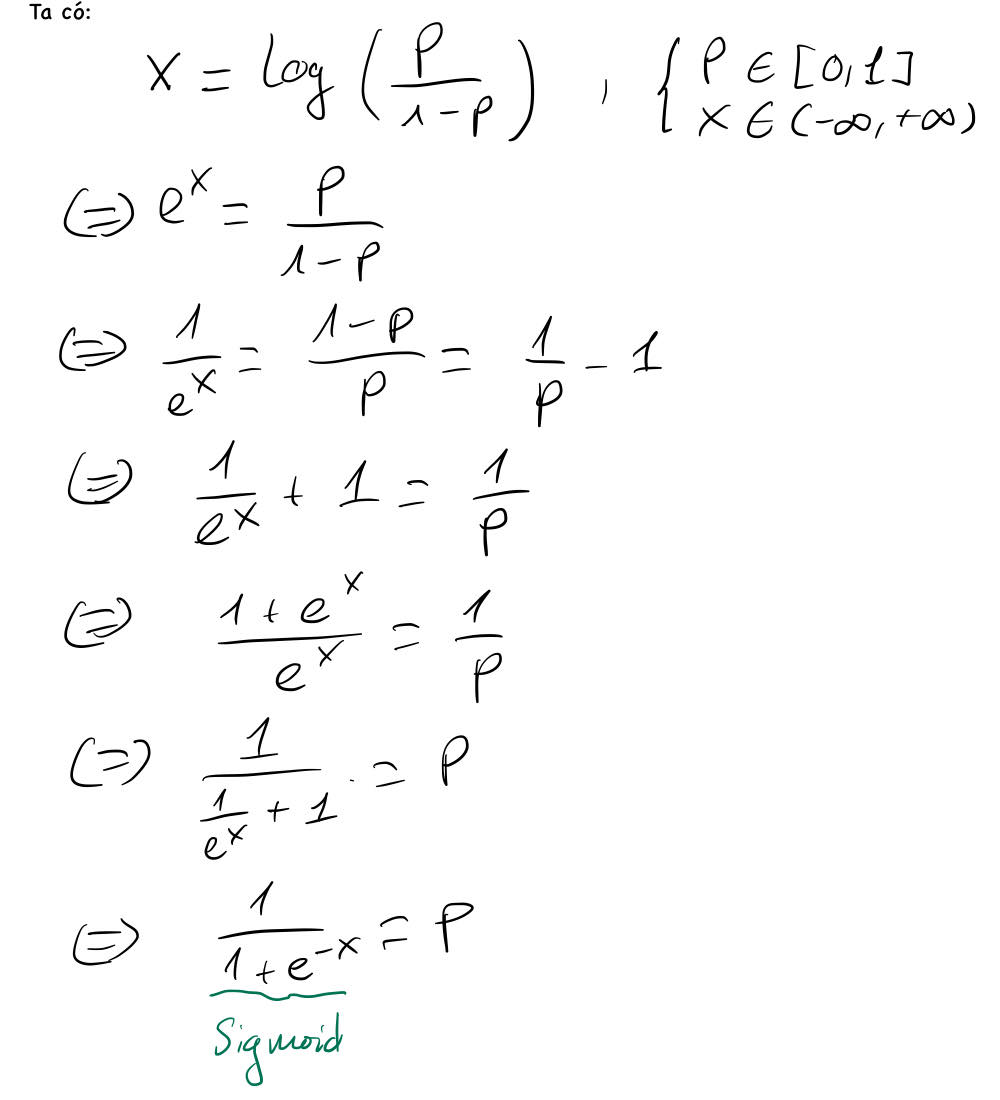 Ta có:
x = log(p/(1-p)) , { p ∈ [0,1]
x ∈ (-∞,+∞)
(=) e^x = p/(1-p)
(=) 1/e^x = (1-p)/p = 1/p - 1
(=) 1/e^x + 1 = 1/p
(=) (1+e^x)/e^x = 1/p
(=) 1/(1/e^x + 1) . = p
(=) 1/(1+e^-x) = p
Sigmoid